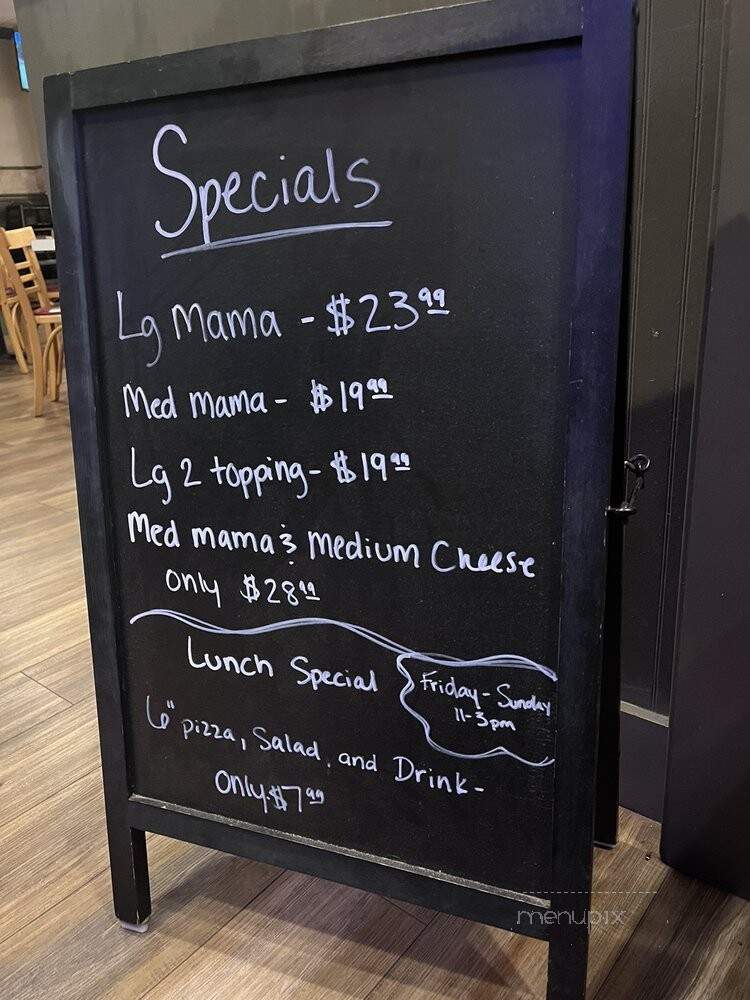 Specials
Lg Mama - $23.99
Med mama - $19.99
Lg 2 topping - $19.99
Med mama & Medium Cheese
only $28.99
Lunch Special
Friday - Sunday
11-3pm
6" pizza, Salad, and Drink -
Only $7.99
menupix